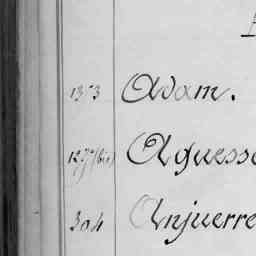 1373 Adam.
1297(bis) Aguess
304 Anjuerre